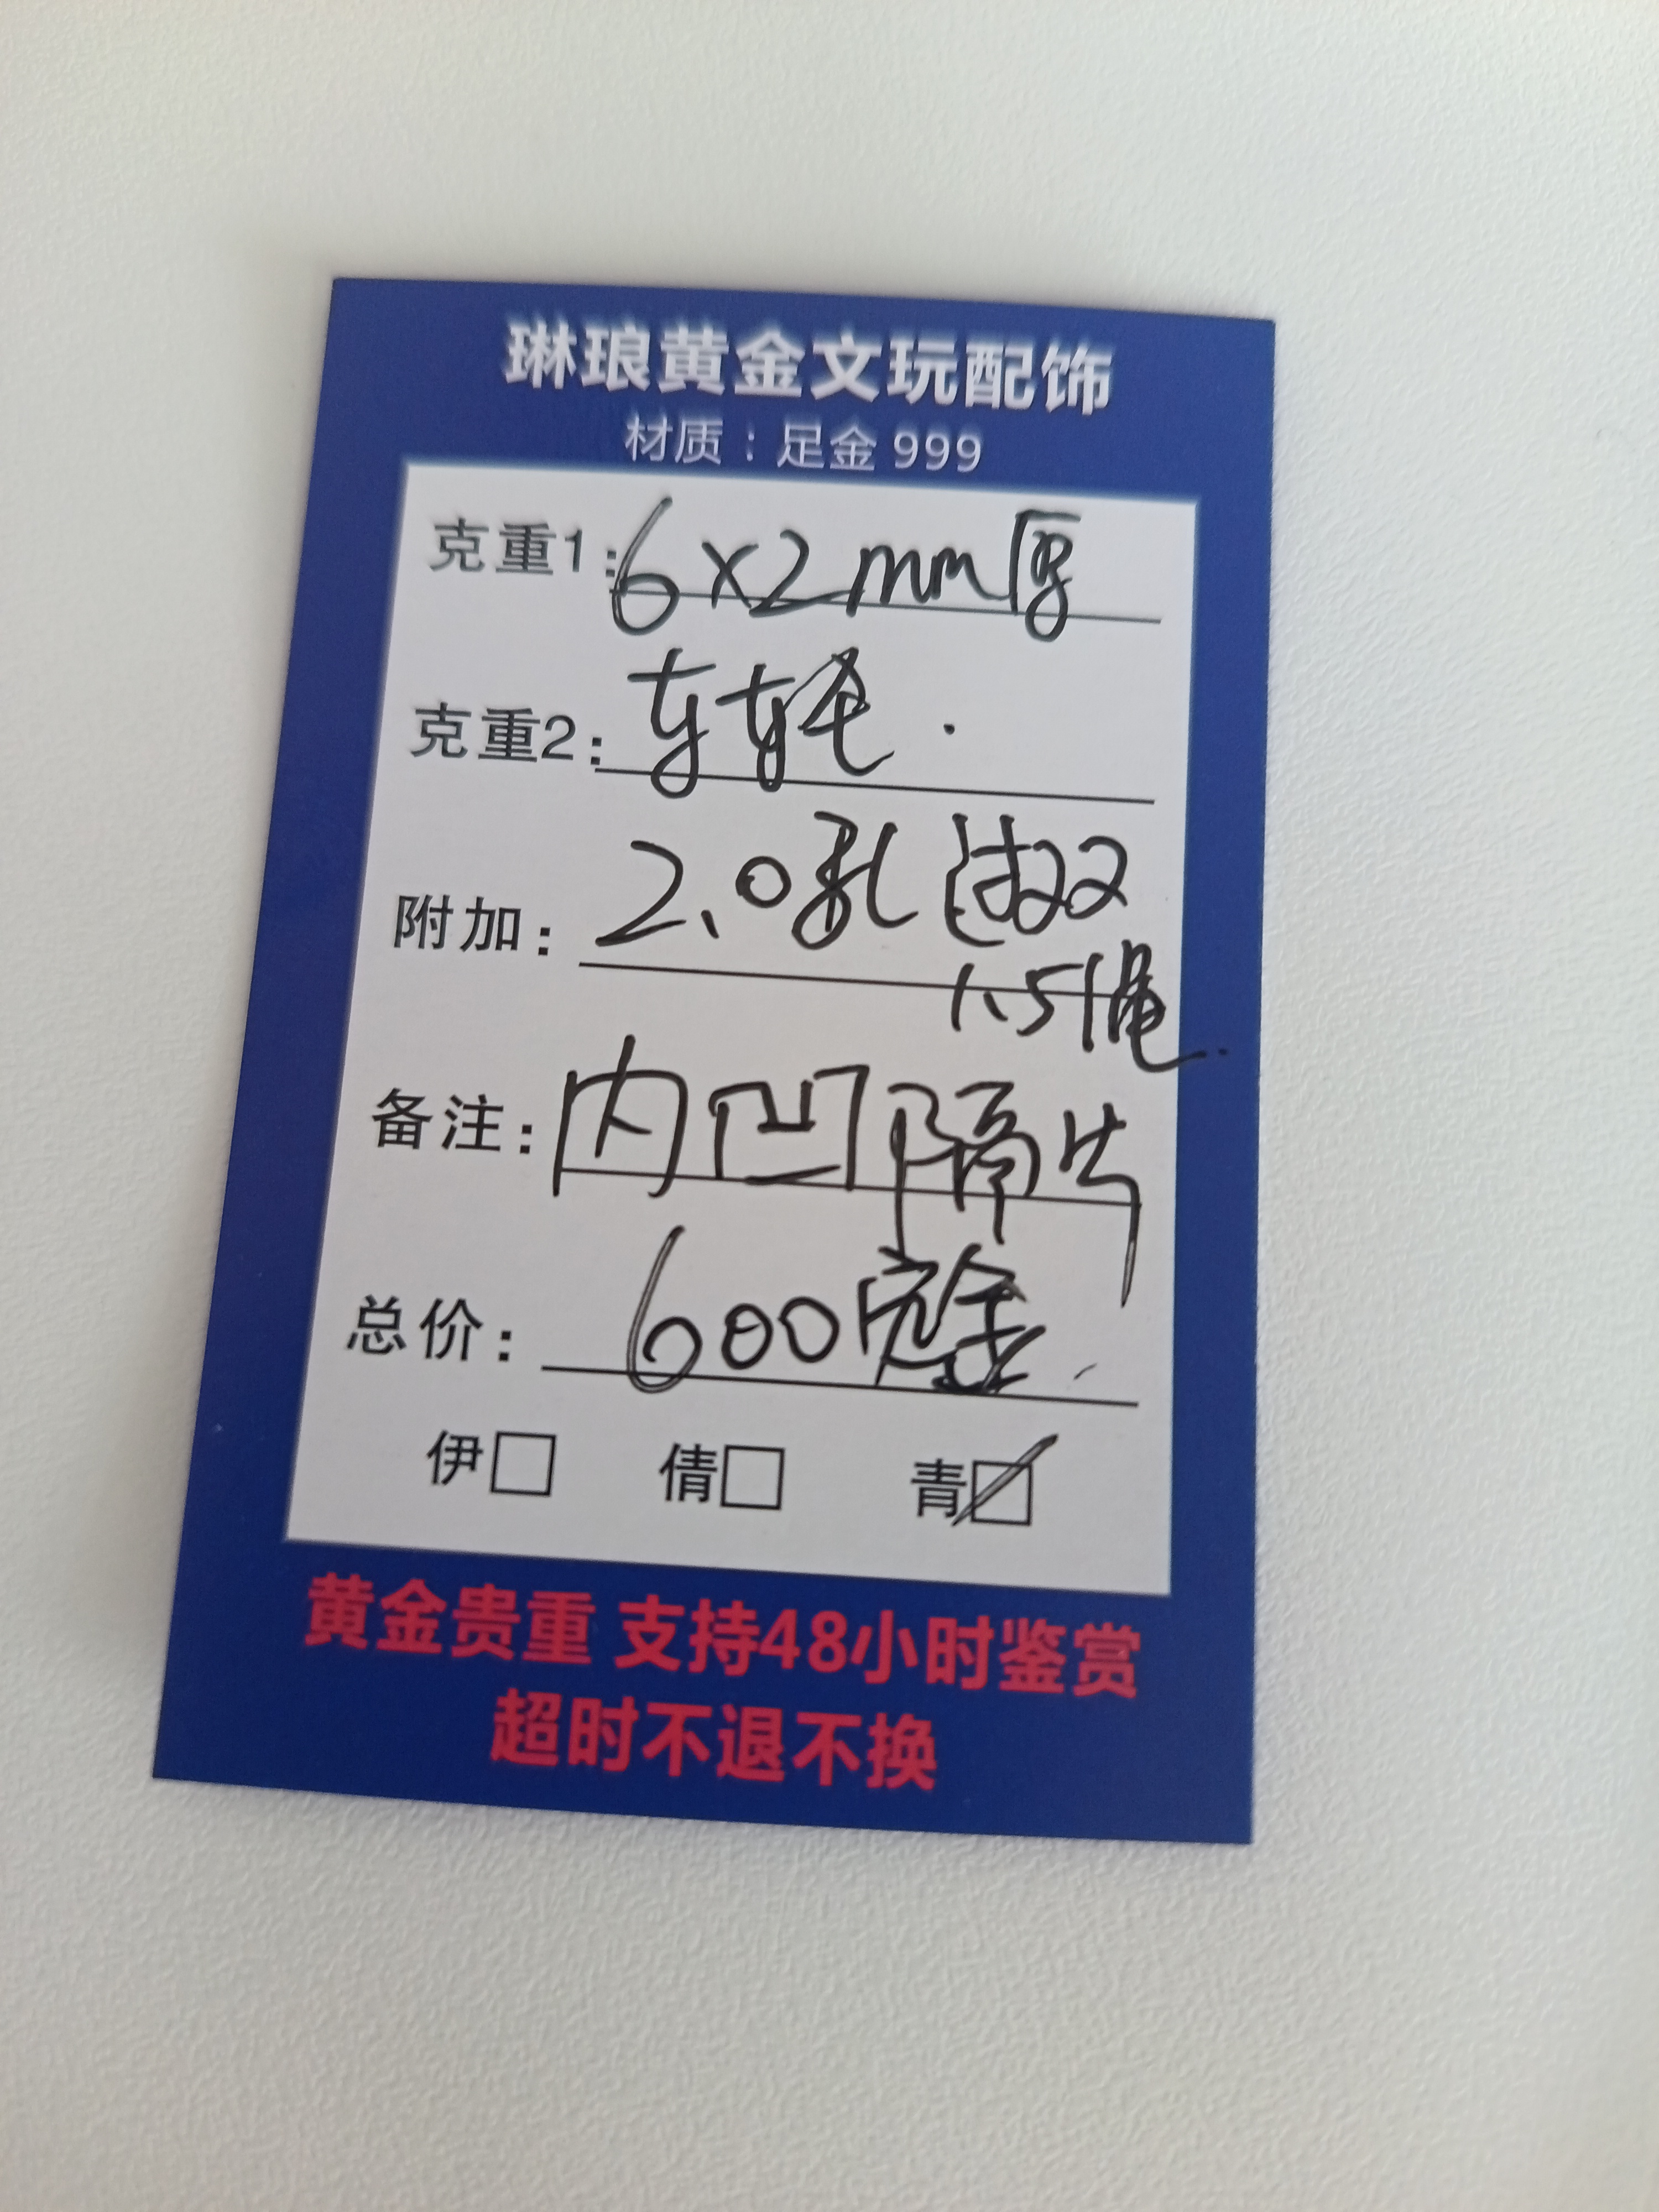 琳琅黄金文玩配饰
材质：足金 999
克重1：6×2mm厚
克重2：
附加：2.0孔 过双
1.5绳
备注：内凹隔片
总价：600
伊□ 倩□ 青☑
黄金贵重 支持48小时鉴赏
超时不退不换